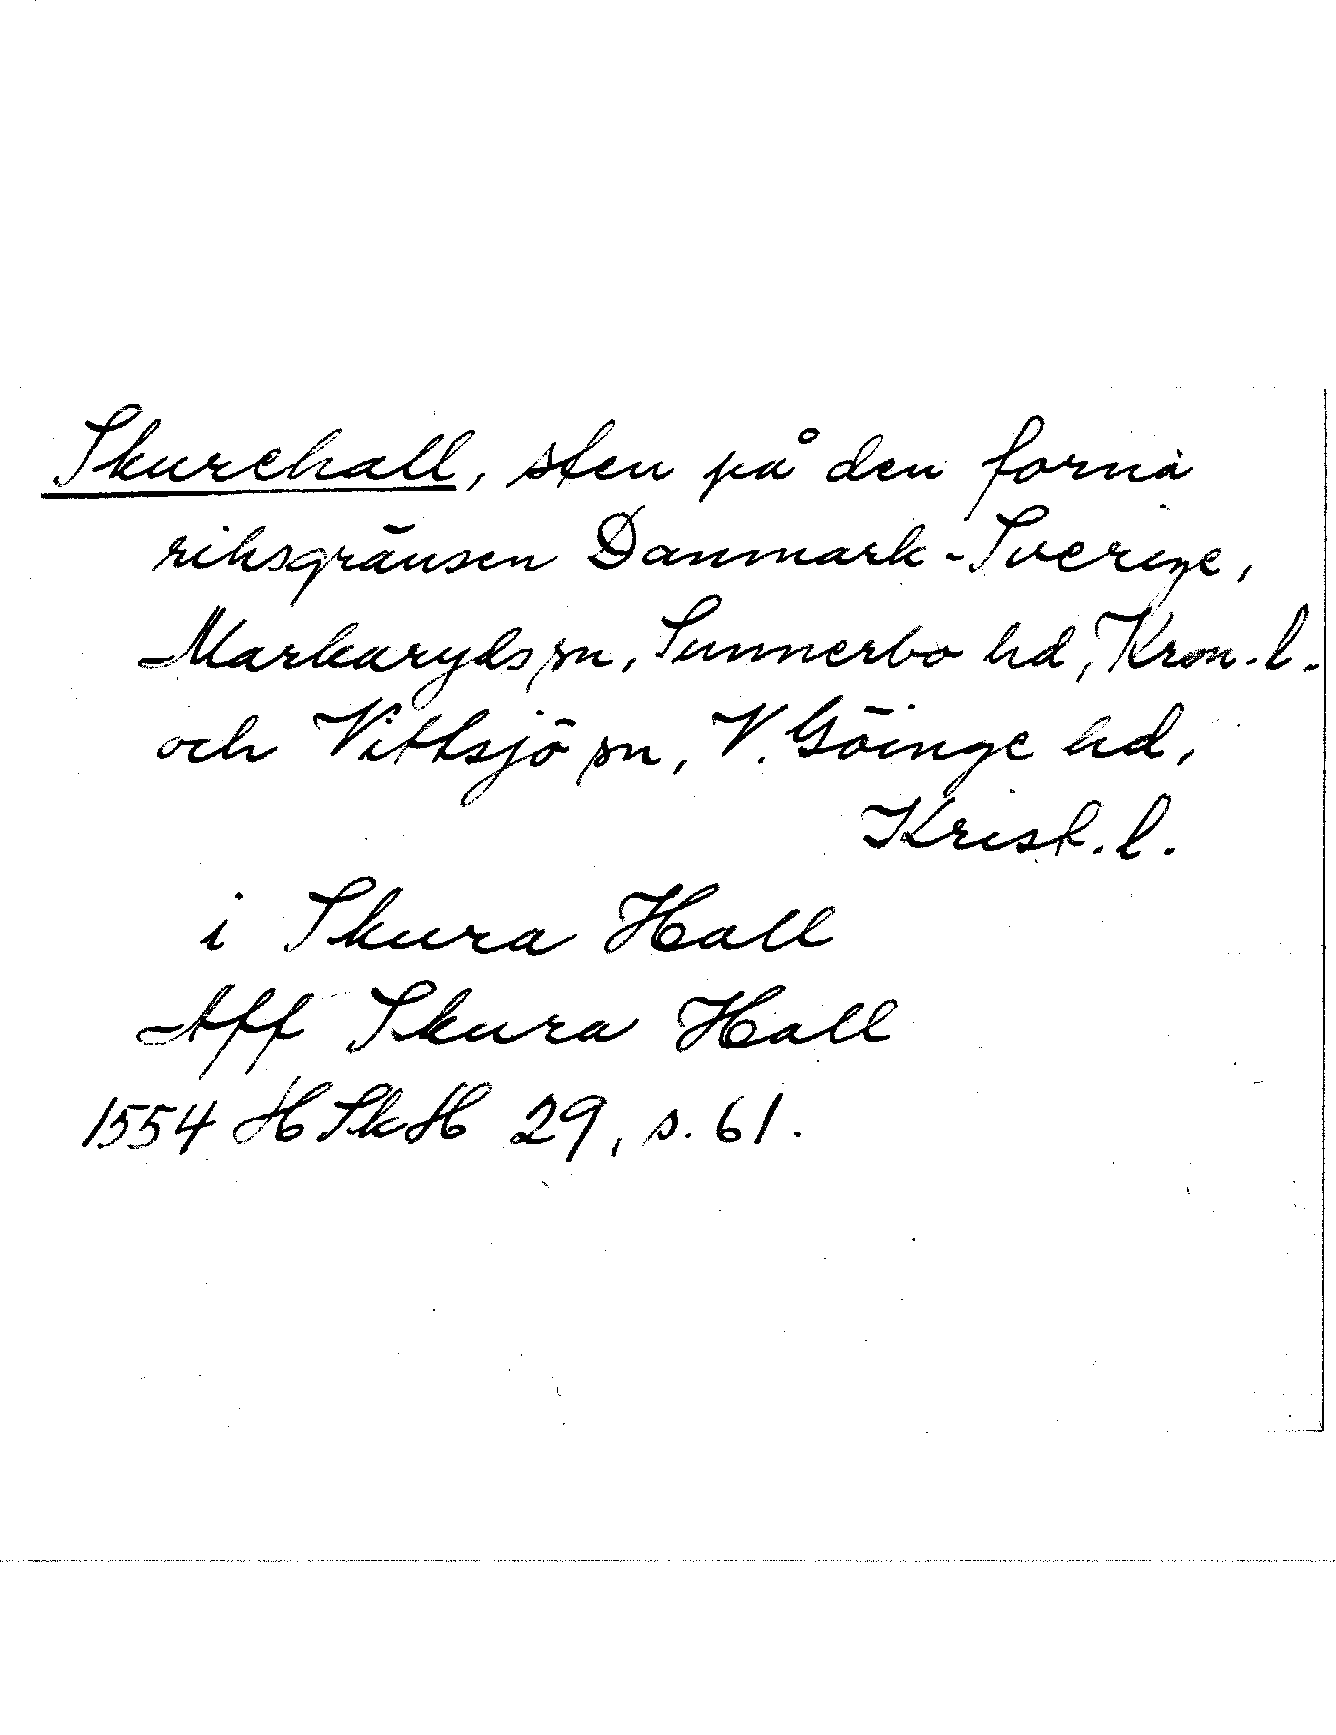 Skurehall, sten på den forna
riksgränsen Danmark-Sverige,
Markaryds sn, Sunnerbo hd, Kron. l.
och Vittsjö sn, V. Göinge hd,
Krist. l.
i Skura Hall
Aff Skura Hall
1554 HSkH 29, s. 61.